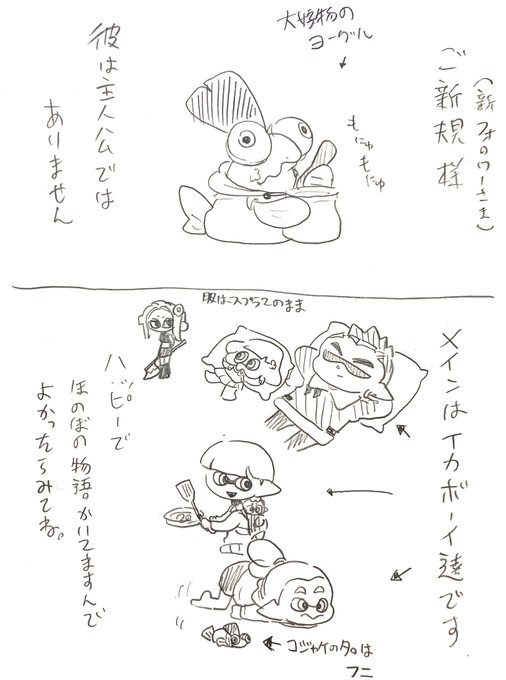 ご新規様
(新フォロワーさま)
大好物の
ヨーグル
もにゅ
もにゅ
彼は主人公では
ありません
メインはイカボーイ達です
服はスプラ2のまま
ハッピーで
ほのぼの物語。かいてますんで
よかったらみてね。
コジャケのタ。は
フニ